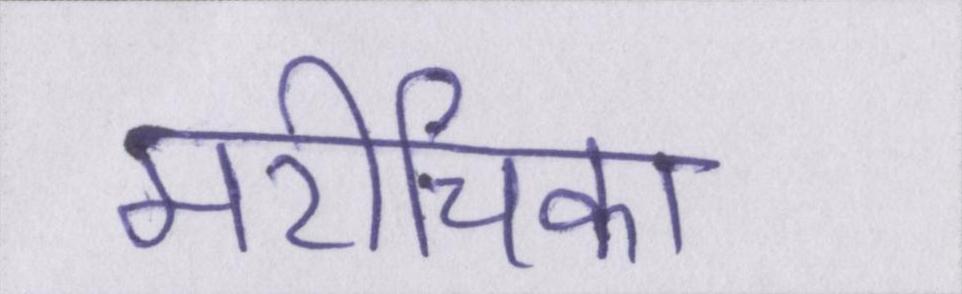 मरीचिका